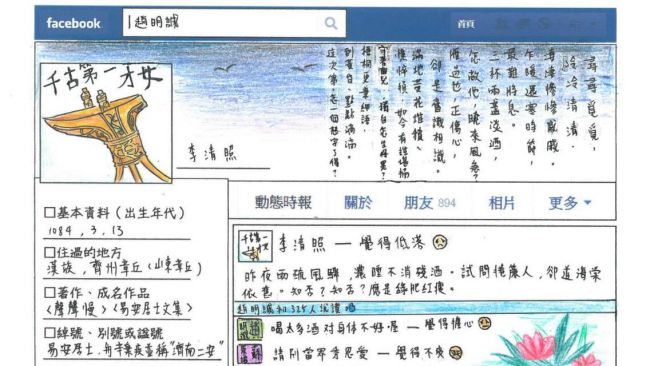 facebook
趙明誠
首頁
千古第一才女
尋尋覓覓，
冷冷清清，
悽悽慘慘戚戚。
乍暖還寒時節，
最難將息。
三杯兩盞淡酒，
怎敵他，曉來風急？
雁過也，正傷心，
卻是舊識相識。
滿地黃花堆積，
憔悴損，如今有誰堪摘
守著窗兒，獨自怎生得黑？
梧桐更兼細雨，
到黃昏、點點滴滴。
這次第，怎一個愁字了得？
李清照
動態時報 關於 朋友 894 相片 更多
□基本資料（出生年代）
1084 , 3 . 13
□住過的地方
漢族，齊州章丘（山東章丘）
□著作、成名作品
<聲聲慢> <易安居士文集>
□綽號、別號或諡號
易安居士，與辛棄疾並稱"濟南二安"
千古第一
李清照 — 覺得低落
昨夜雨疏風驟，濃睡不消殘酒。試問捲簾人，卻道海棠
依舊。知否？知否？應是綠肥紅瘦。
趙明誠和325人說讚
喝太多酒對身体不好喔 — 覺得擔心
請別當眾秀恩愛 — 覺得不爽